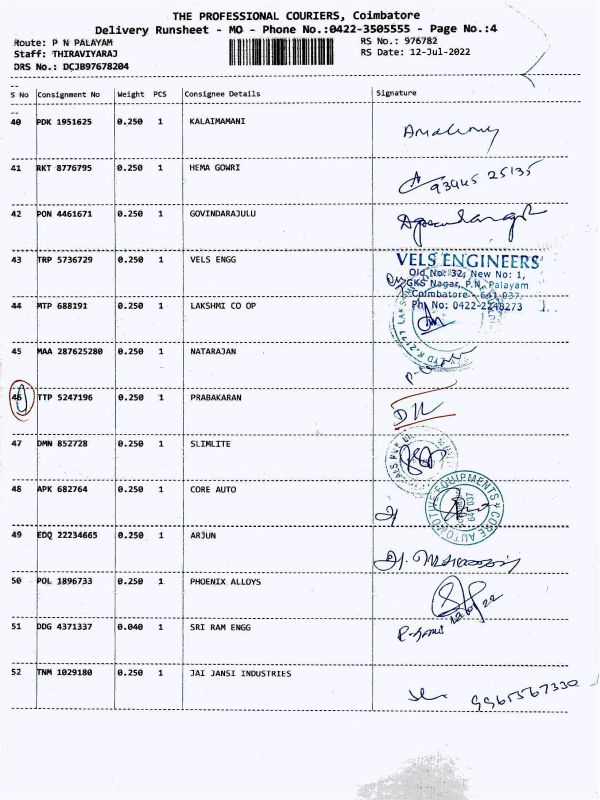 THE PROFESSIONAL COURIERS, Coimbatore
Delivery Runsheet - MO - Phone No.:0422-3505555 - Page No.:4
Route: P N PALAYAM RS No.: 976782
Staff: THIRAVIYARAJ RS Date: 12-Jul-2022
DRS No.: DCJB97678204
S No Consignment No Weight PCS Consignee Details Signature
40 PDK 1951625 0.250 1 KALAIMAMANI
41 RKT 8776795 0.250 1 HEMA GOWRI
93445 25135
42 PON 4461671 0.250 1 GOVINDARAJULU
43 TRP 5736729 0.250 1 VELS ENGG
VELS ENGINEERS
Old No: 32, New No: 1,
GKS Nagar, P.N. Palayam
Coimbatore - 641 037
44 MTP 688191 0.250 1 LAKSHMI CO OP
Ph No: 0422-2246273
45 MAA 287625280 0.250 1 NATARAJAN
46 TTP 5247196 0.250 1 PRABAKARAN
47 DMN 852728 0.250 1 SLIMLITE
48 APK 682764 0.250 1 CORE AUTO
CORE AUTOMOTIVE EQUIPMENTS
641 037
49 EDQ 22234665 0.250 1 ARJUN
50 POL 1896733 0.250 1 PHOENIX ALLOYS
51 DDG 4371337 0.040 1 SRI RAM ENGG
52 TNM 1029180 0.250 1 JAI JANSI INDUSTRIES
9965567330